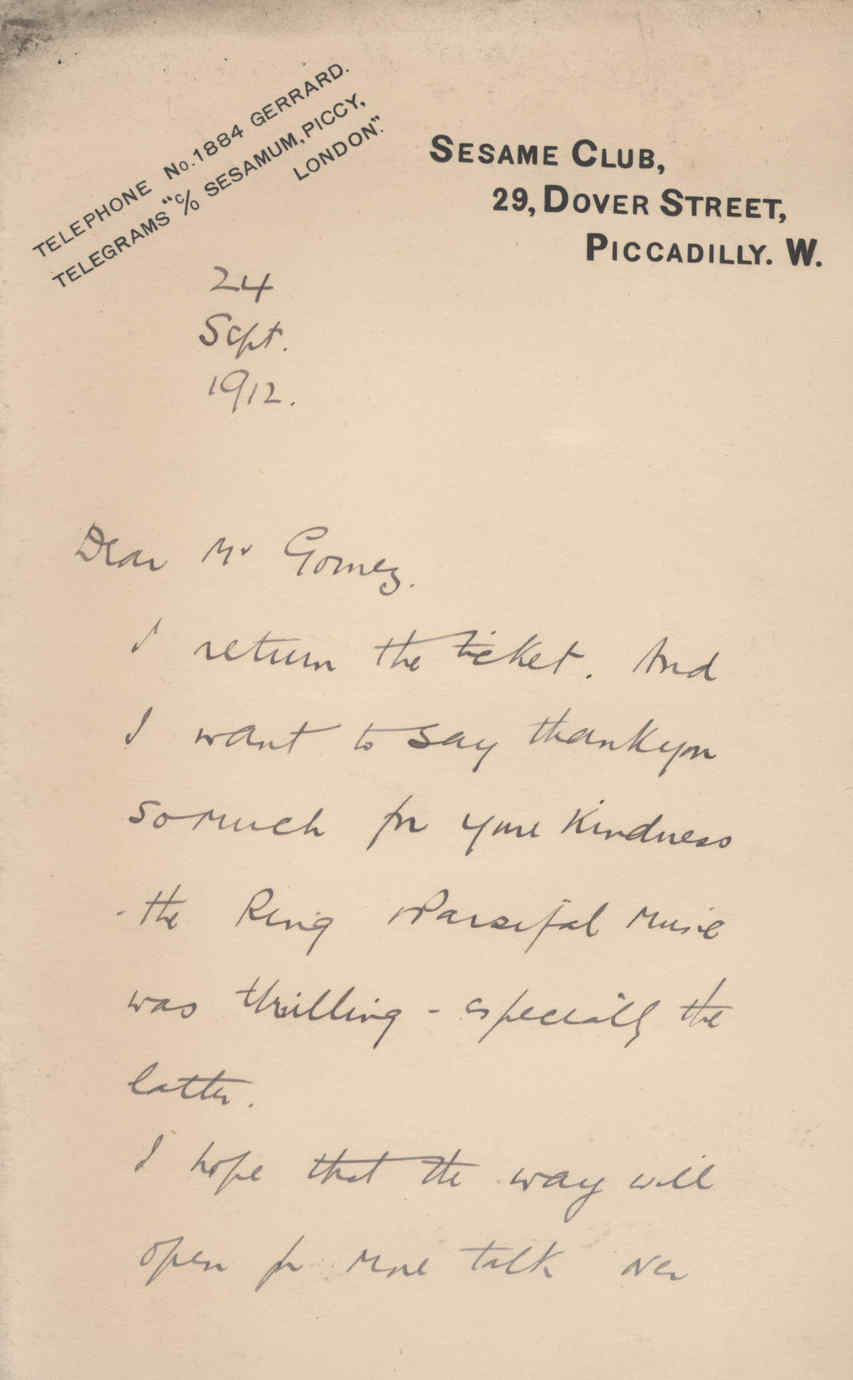 TELEPHONE No. 1884 GERRARD.
TELEGRAMS "C/O SESAMUM, PICCY,
LONDON".
SESAME CLUB,
29, DOVER STREET,
PICCADILLY. W.
24
Sept.
1912.
Dear Mr Gomez.
I return the ticket. And
I want to say thankyou
so much for your kindness
- the Ring & Parsifal music
was thrilling - especially the
latter.
I hope that the way will
open for more talk over